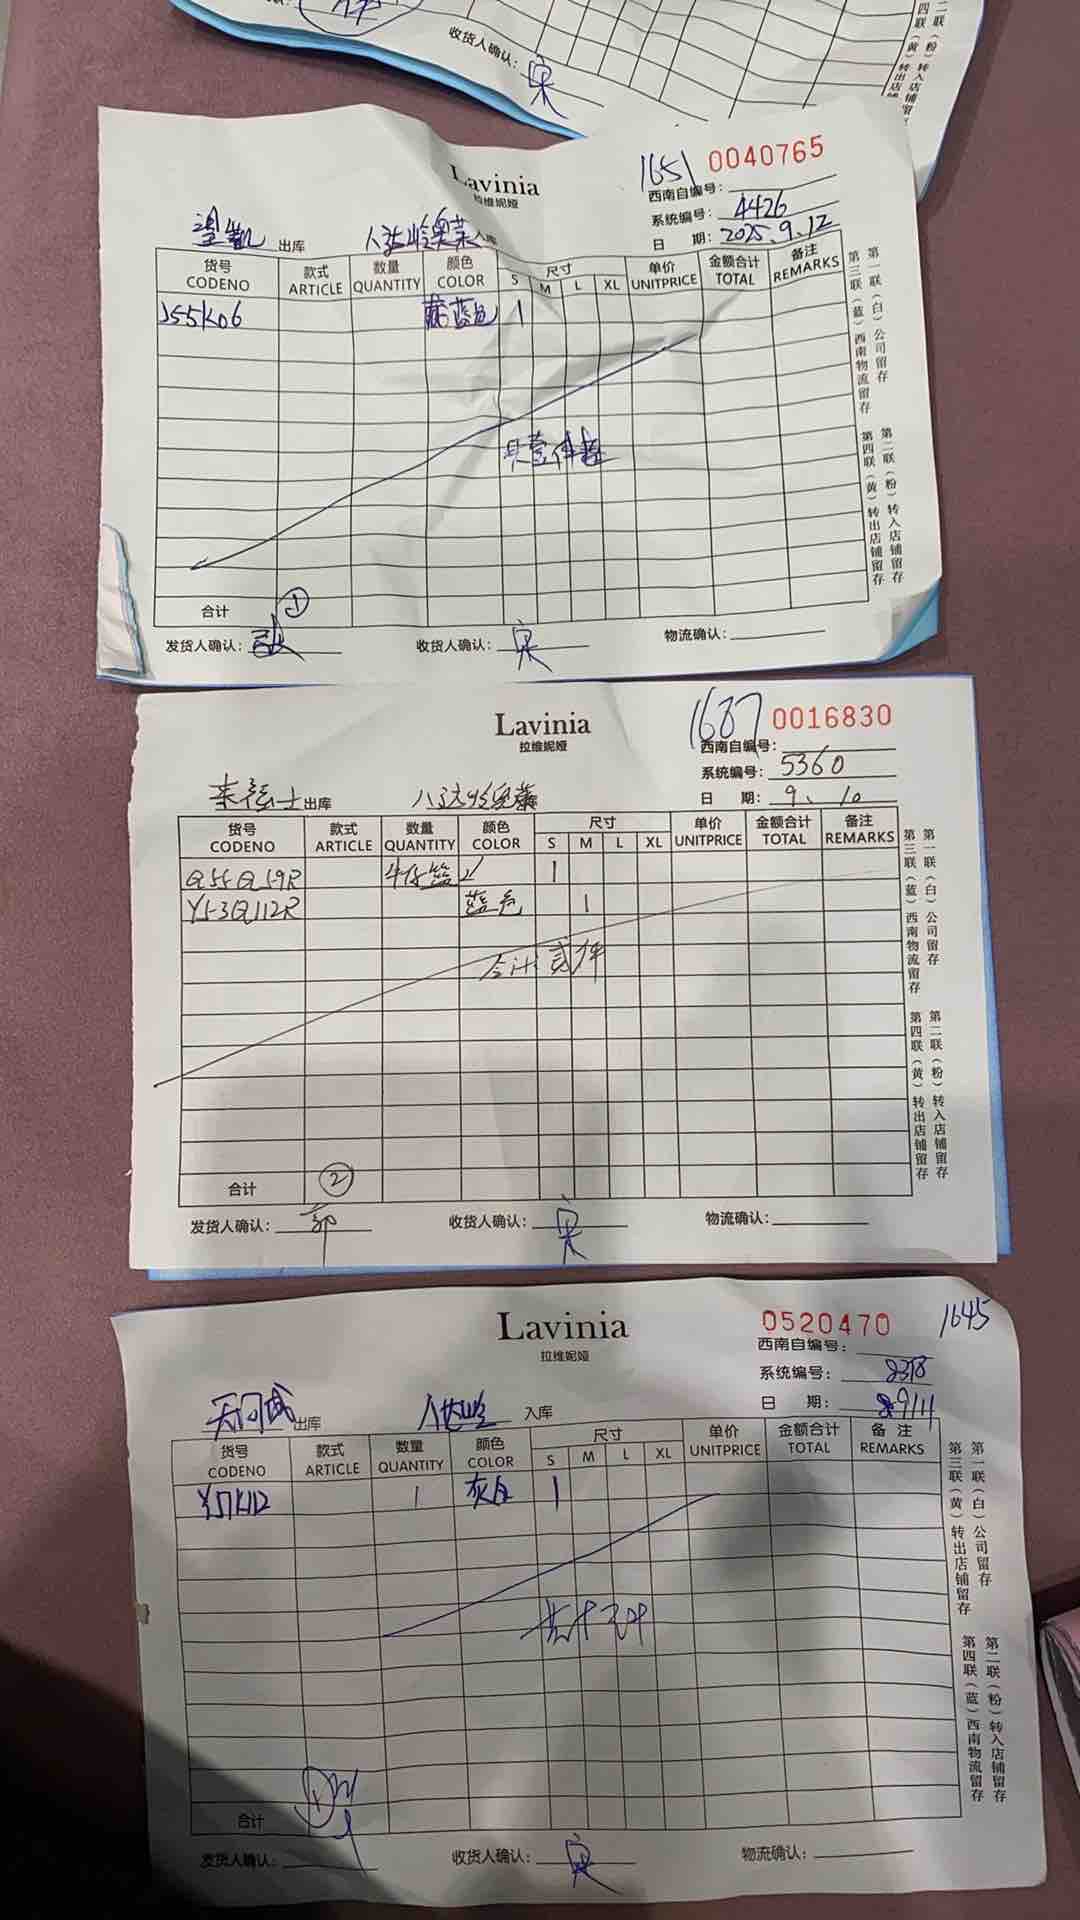 收货人确认: 宋
二联(粉)转入店铺留
四联(黄)转出店铺
Lavinia
拉维妮娅
1651 0040765
西南自编号:
系统编号: 4426
日 期: 2025.9.12
望凯 出库 八达岭奥莱 入库
货号 款式 数量 颜色 尺寸 单价 金额合计 备注
CODENO ARTICLE QUANTITY COLOR S M L XL UNITPRICE TOTAL REMARKS
J55K06 蓝色 1
合计 ①
发货人确认: 收货人确认: 宋 物流确认:
第一联(白)公司留存
第三联(蓝)西南物流留存
第二联(粉)转入店铺留存
第四联(黄)转出店铺留存
Lavinia
拉维妮娅
1687 0016830
西南自编号:
系统编号: 5360
日 期: 9.10
来福士 出库 八达岭奥莱
货号 款式 数量 颜色 尺寸 单价 金额合计 备注
CODENO ARTICLE QUANTITY COLOR S M L XL UNITPRICE TOTAL REMARKS
Q55Q59R 牛仔篮 1
Y53Q112R 蓝色 1
合计 贰件
合计 ②
发货人确认: 郭 收货人确认: 宋 物流确认:
第一联(白)公司留存
第三联(蓝)西南物流留存
第二联(粉)转入店铺留存
第四联(黄)转出店铺留存
Lavinia
拉维妮娅
0520470 1645
西南自编号:
系统编号: 8378
日 期: 9/11
天河城 出库 八达岭 入库
货号 款式 数量 颜色 尺寸 单价 金额合计 备注
CODENO ARTICLE QUANTITY COLOR S M L XL UNITPRICE TOTAL REMARKS
Y57K112 1 灰色 1
合计 ①
发货人确认: 收货人确认: 宋 物流确认:
第一联(白)公司留存
第三联(黄)转出店铺留存
第二联(粉)转入店铺留存
第四联(蓝)西南物流留存